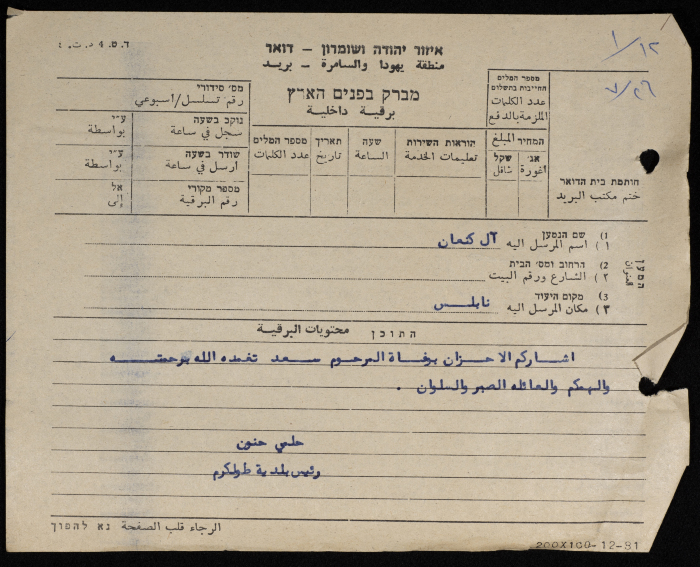 ד.ט. 4 מ.ט.
איזור יהודה ושומרון - דואר
منطقة يهودا والسامرة - بريد
מברק בפנים הארץ
برقية داخلية
1/12
מספר המלים
החייבות בתשלום
عدد الكلمات
الملزمة بالدفع
המחיר المبلغ
אג' שקל
اغورة شاقل
חותמת בית הדואר
ختم مكتب البريد
הוראות השירות
تعليمات الخدمة
שעה
الساعة
תאריך
تاريخ
מספר המלים
عدد الكلمات
מס' סידורי
رقم تسلسل/اسبوعي
נוקב בשעה ע"י
سجل في ساعة بواسطة
שודר בשעה ע"י
ارسل في ساعة بواسطة
מספר מקורי אל
رقم البرقية إلى
המען
العنوان
1) שם הנמען
١) اسم المرسل اليه آل كنعان
2) הרחוב ומס' הבית
٢) الشارع ورقم البيت
3) מקום היעוד
٣) مكان المرسل اليه نابلس
התוכן محتويات البرقية
اشاركم الاحزان بوفاة المرحوم سعد تغمده الله برحمته
والهمكم والعائله الصبر والسلوان .
حلمي حنون
رئيس بلدية طولكرم
الرجاء قلب الصفحة נא להפוך
200X100-12-81